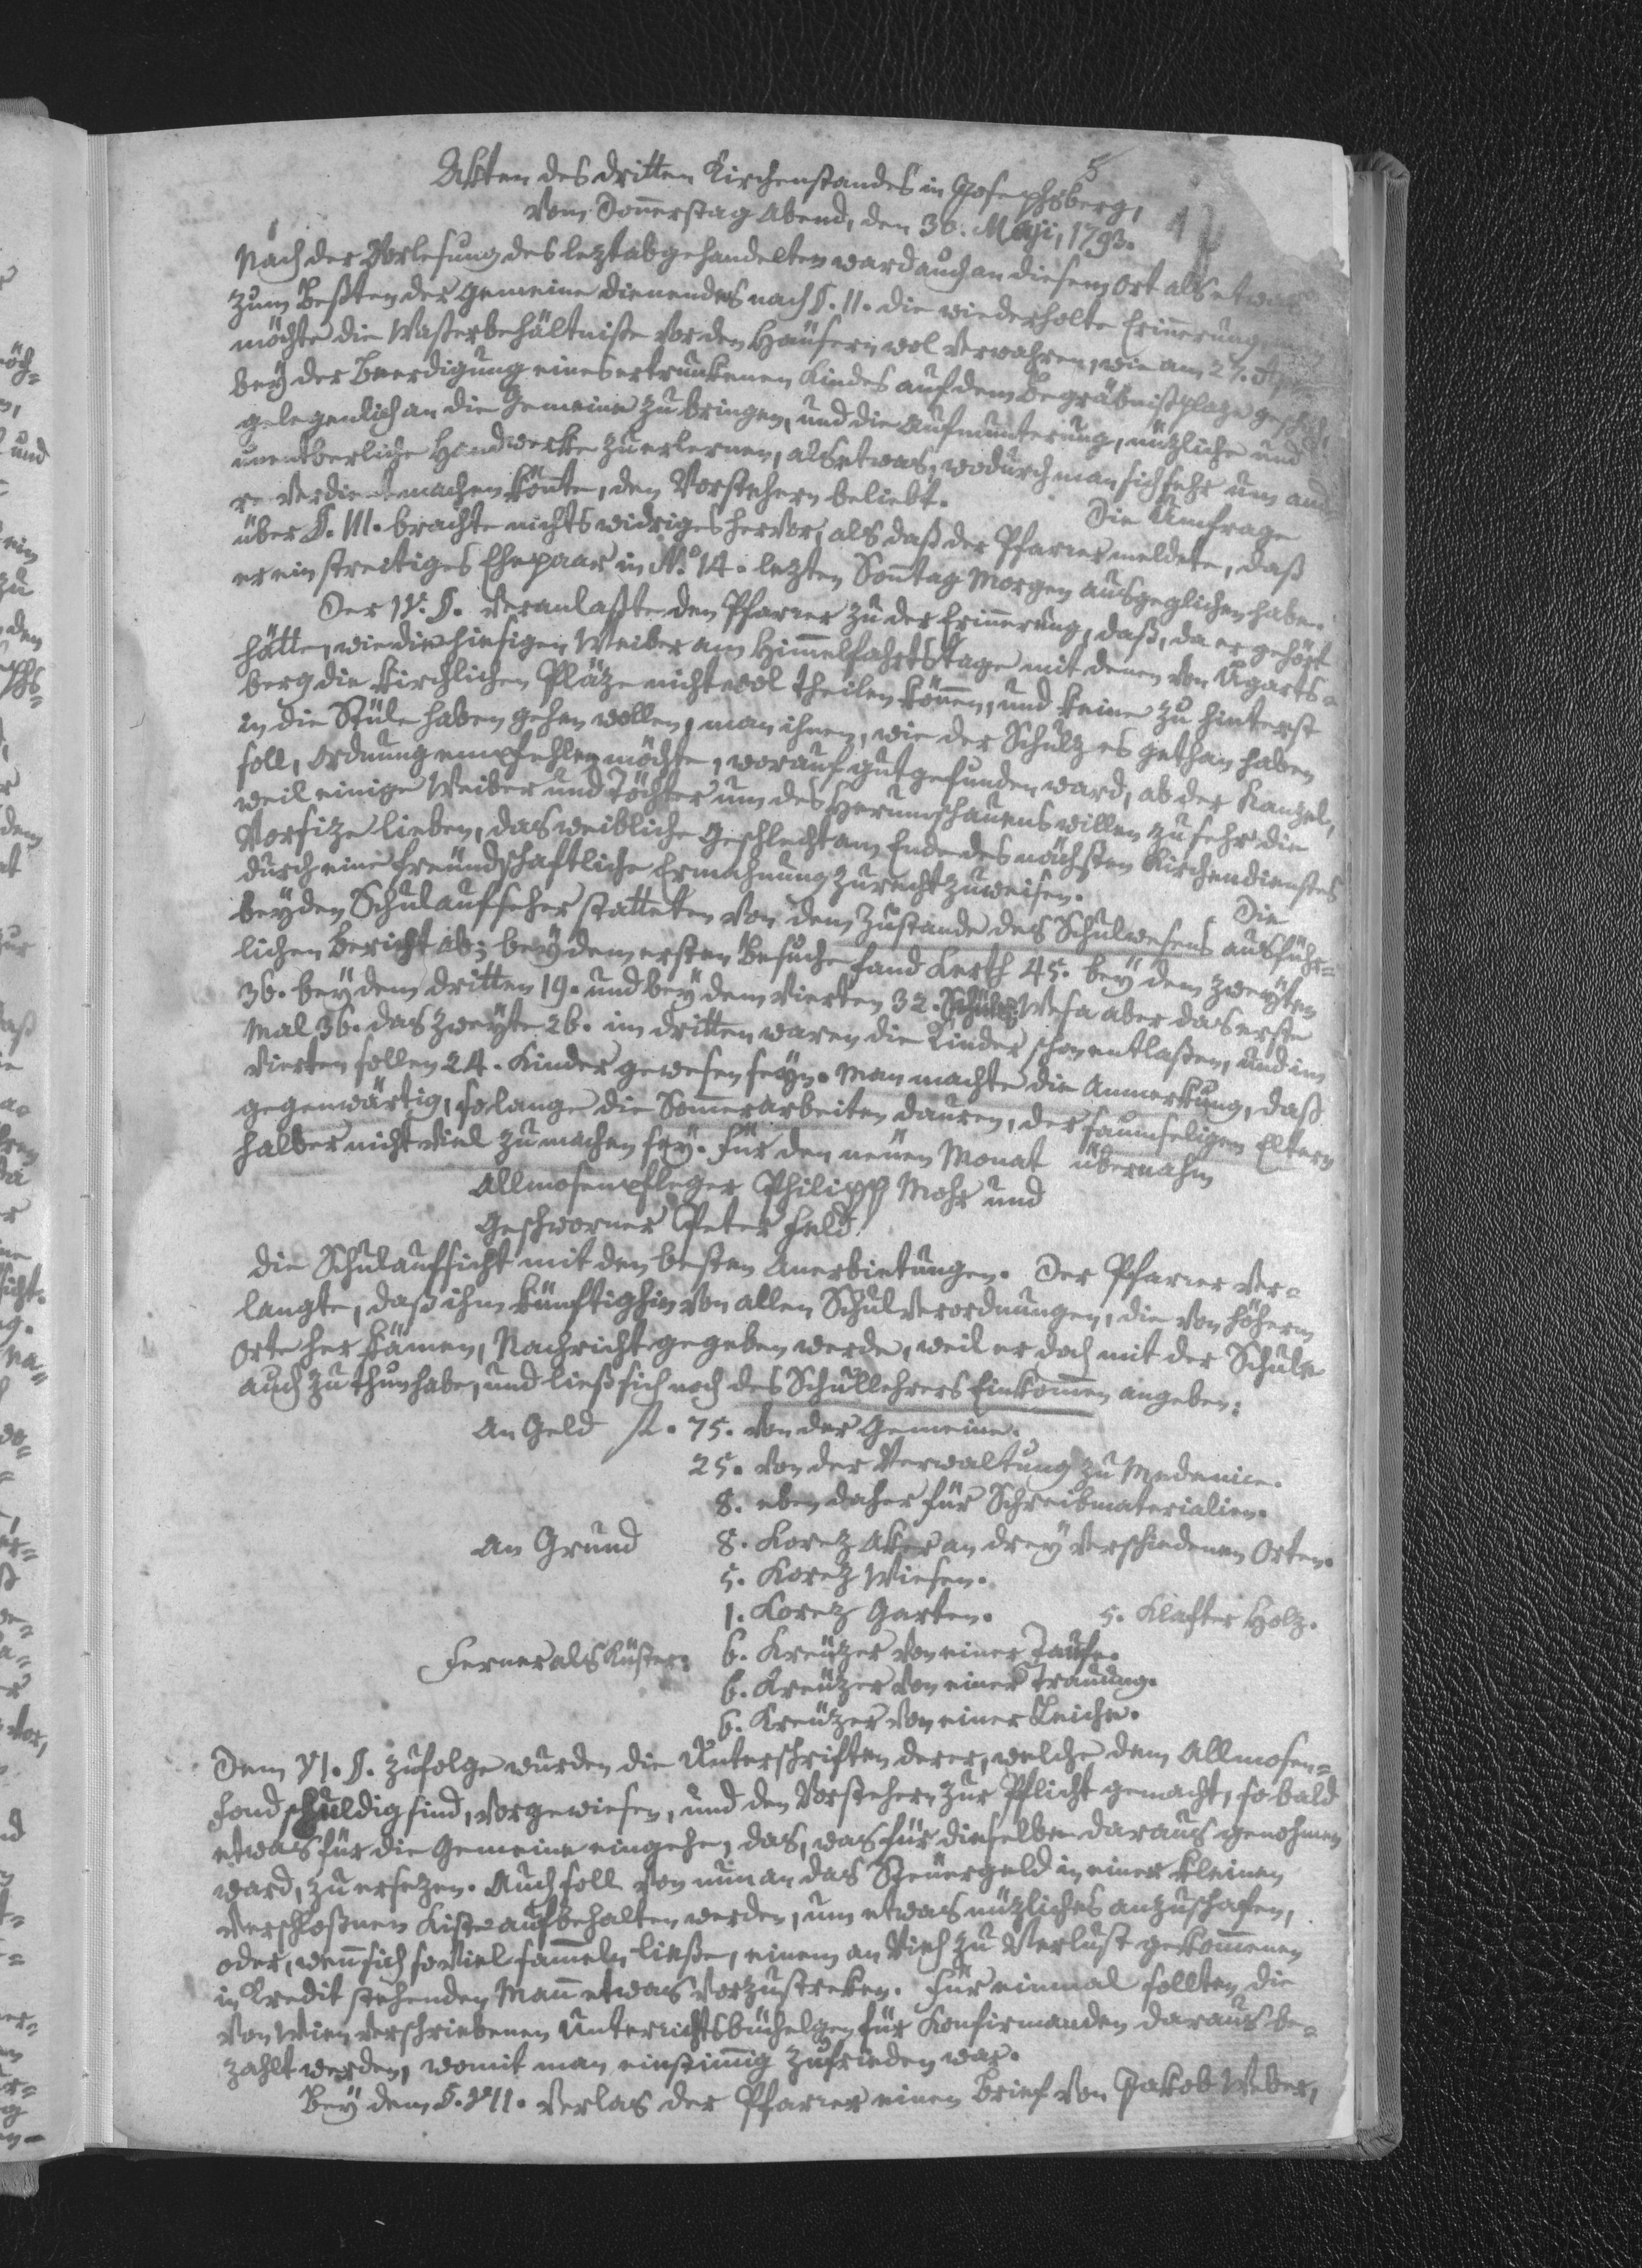 5
Akten des dritten Kirchenstandes in Josephsberg,
vom Donnerstag Abend, den 30. Maji, 1793.
Nach der Vorlesung des leztabgehandelten ward auch an diesem Ort als etwas
zum Beßten der Gemeine dienendes nach §. II. die wiederholte Erinnerung,
möchte die Waßerbehältniße vor den Häusern wol verwahren, wie am 27. Apr
bey der Beerdigung eines ertrunkenen Kindes auf dem Begräbnißplaze geschah,
gelegenlich an die Gemeine zu bringen, und die Aufmunterung, nüzliche und
unentberliche Handwerke zu erlernen, als etwas, wodurch man sich sehr um ande-
re verdient machen könte, den Vorstehern beliebt. Die Umfrage
über §. III. brachte nichts widriges hervor, als daß der Pfarrer meldete, daß
er ein streitiges Ehepaar in No. 14. lezten Sontag Morgen ausgeglichen habe.
Der IV. §. veranlaßte den Pfarrer zu der Erinnerung, daß, da er gehört
hätte, wie die hiesigen Weiber am Himmelfahrtstage mit denen von Ugarts-
berg die kirchlichen Pläze nicht wol theilen können, und keine zu hinterst
in die Stüle haben gehen wollen, man ihnen, wie der Schulz es gethan haben
soll, Ordnung empfehlen möchte, worauf gut gefunden ward, ab der Kanzel,
weil einige Weiber und Töchter um des Herumschauens willen zu sehr die
Vorsize lieben, das weibliche Geschlecht am Ende des nächsten Kirchendienstes
durch eine freundschaftliche Ermahnung zurechtzuweisen. Die
beyden Schulaufseher statteten von dem Zustande des Schulwesens ausführ-
lichen Bericht ab; bey dem ersten Besuche fand Kerth 45. bey dem zweyten
36. bey dem dritten 19. und bey dem vierten 32. Schüler; Wesa aber das erste
Mal 36. das zweyte 26. im dritten waren die Kinder schon entlaßen, und im
vierten sollen 24. Kinder gewesen seyn. Man machte die Anmerkung, daß
gegenwärtig, so lange die Sommerarbeiten dauren, der saumseligen Eltern
halber nicht viel zu machen sey. Für den neuen Monat übernahm
Allmosenpfleger Philipp Mohr und
Geschworner Peter Held
die Schulaufsicht mit den besten Anerbietungen. Der Pfarrer ver-
langte, daß ihm künftighin von allen Schulverordnungen, die von höherm
Orte her kämen, Nachricht gegeben werde, weil er doch mit der Schule
auch zu thun habe, und ließ sich noch des Schullehrers Einkommen angeben:
An Geld fl. 75. von der Gemeine.
25. von der Verwaltung zu Medenice.
8. eben daher für Schreibmaterialien.
An Grund 8. Korez Aker an drey verschiedenen Orten.
5. Korez Wiesen.
1. Korez Garten. 5. Klafter Holz.
Ferner als Küster: 6. Kreuzer von einer Taufe.
6. Kreuzer von einer Trauung.
6. Kreuzer von einer Leiche.
Dem VI. §. zufolge wurden die Unterschriften derer, welche dem Allmosen-
fond schuldig sind, vorgewiesen, und den Vorstehern zur Pflicht gemacht, so bald
etwas für die Gemeine eingehe, das, was für dieselbe daraus genohmen
ward, zu ersezen. Auch soll von nun an das Steuergeld in einer kleinen
verschloßnen Kiste aufbehalten werden, um etwas nüzliches anzuschafen,
oder, wenn sich soviel sammeln ließe, einem an Vieh zu Verlust gekommenen
in Kredit stehenden Mann etwas vorzustreken. Für einmal sollten die
von Wien verschriebenen Unterrichtsbüchelgen für Konfirmanden daraus be-
zahlt werden, womit man einstimmig zufrieden war.
Bey dem §. VII. verlas der Pfarrer einen Brief von Jakob Weber,